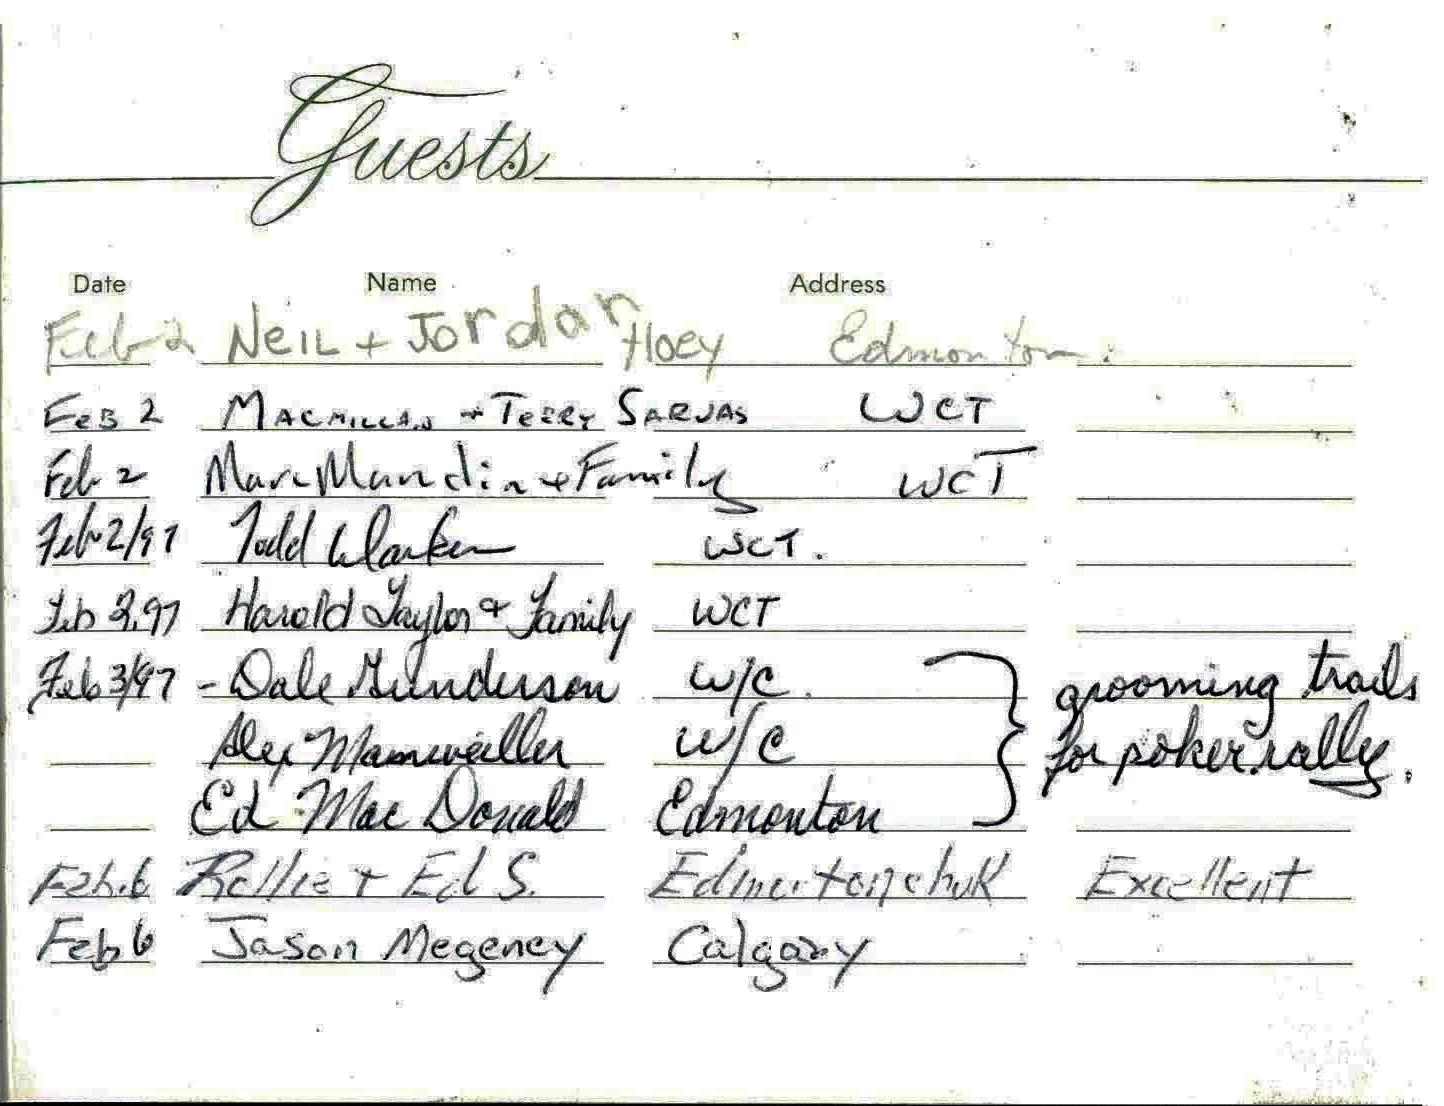 Guests
Date Name Address
Feb 2 Neil + Jordan Hoey Edmonton.
Feb 2 MacMillan + Terry Sarjas WCT
Feb 2 Marc Mandin + Family WCT
Feb 2/97 Todd WCT.
Feb 2, 97 Harold Taylor & Family WCT
Feb 3/97 - Dale Gunderson W/C. grooming trails
Alex W/C for poker rally.
Ed MacDonald Edmonton
Feb. 6 Rollie + Ed S. Edmontonchuk Excellent
Feb 6 Jason Megeney Calgary